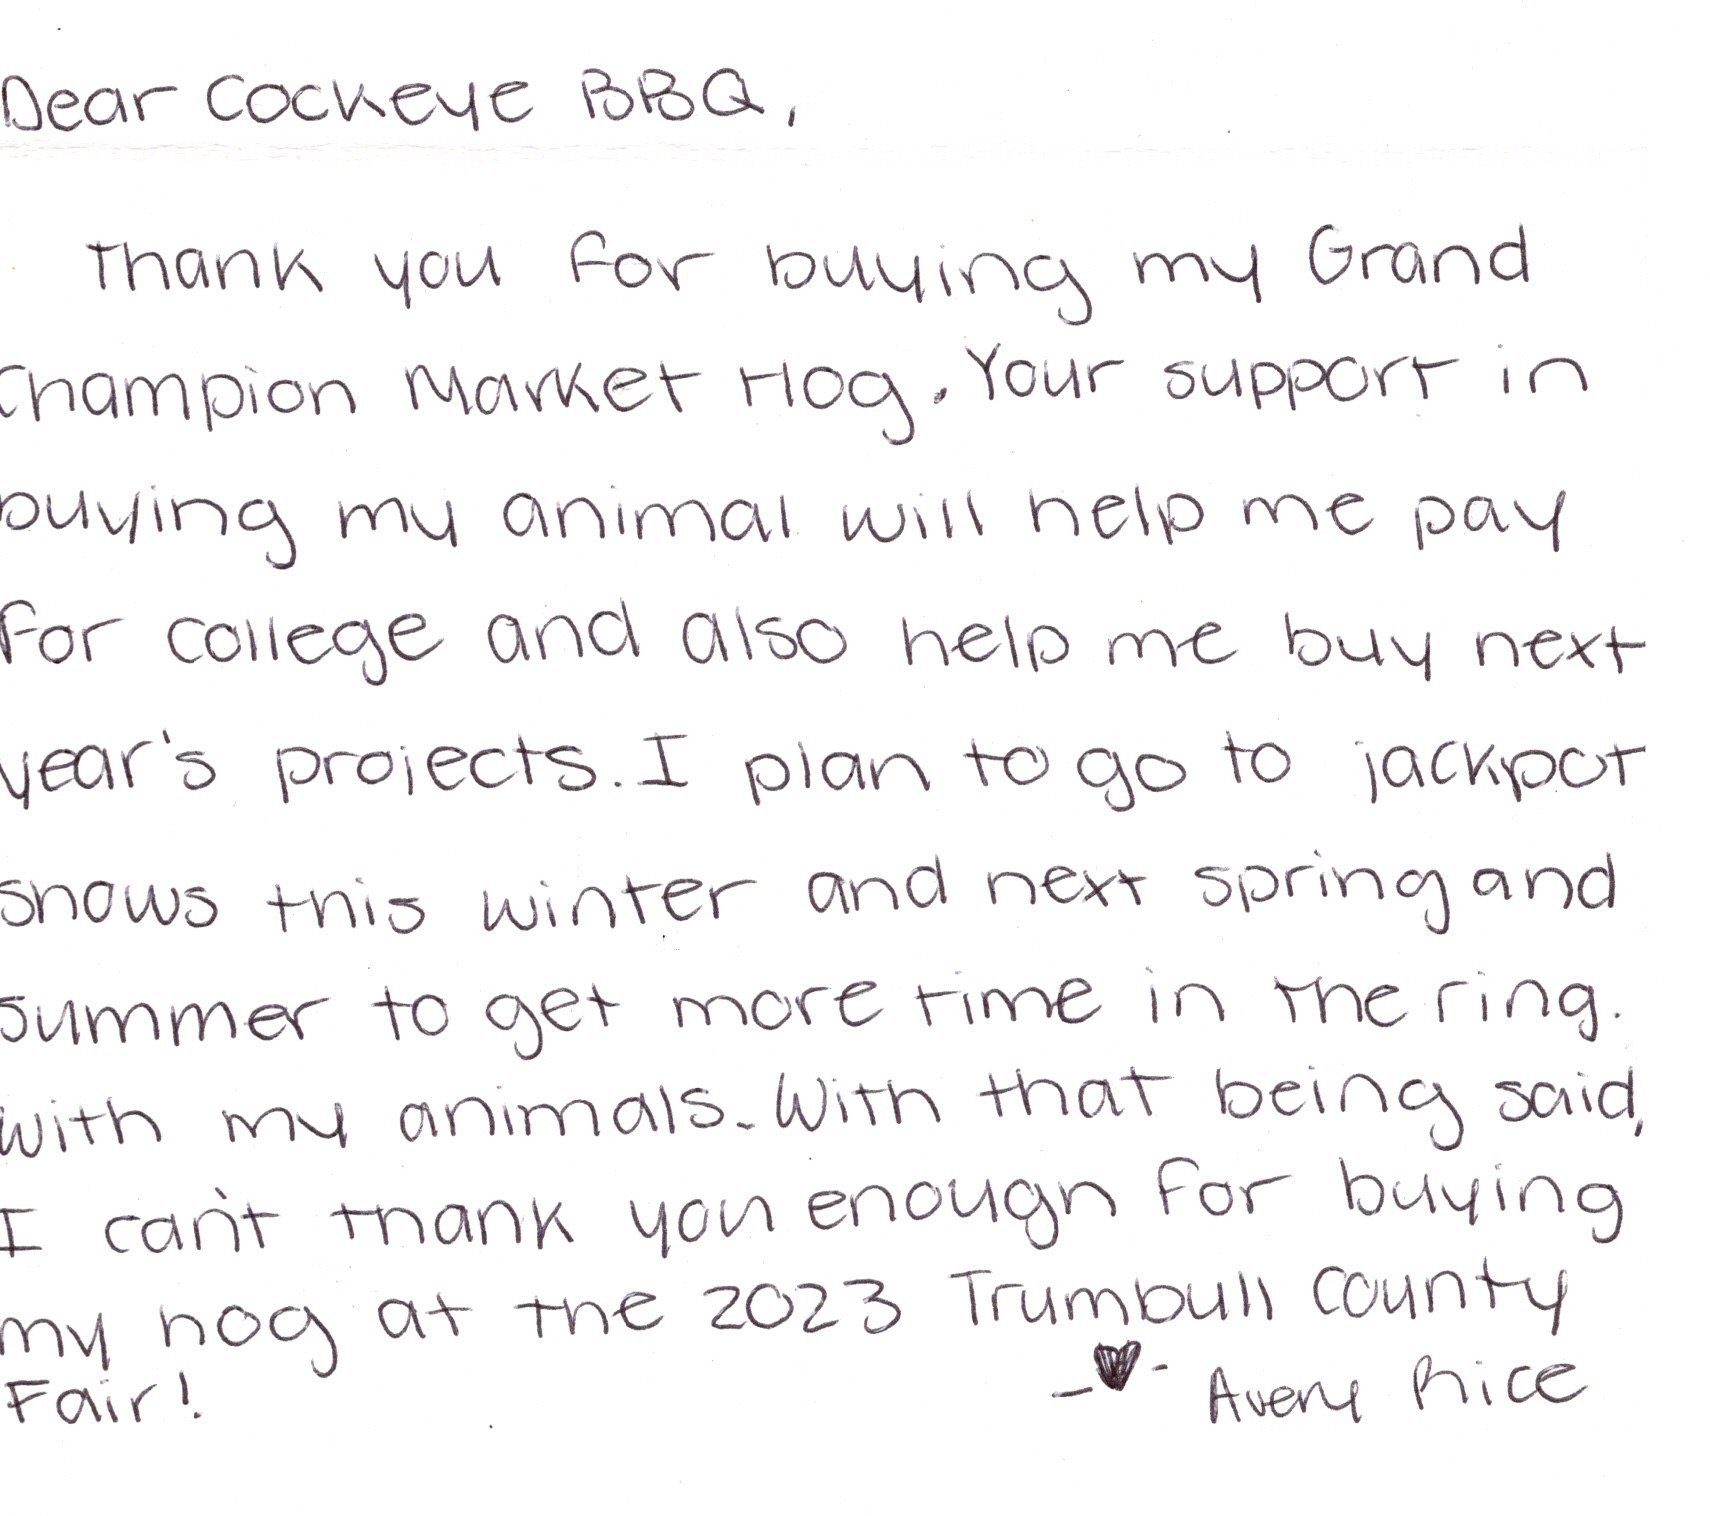 Dear Cockeye BBQ,
Thank you for buying my Grand
Champion Market Hog. Your support in
buying my animal will help me pay
for college and also help me buy next
year's projects. I plan to go to jackpot
shows this winter and next spring and
summer to get more time in the ring.
with my animals. With that being said,
I can't thank you enough for buying
my hog at the 2023 Trumbull County
Fair!
-♥- Avery Rice